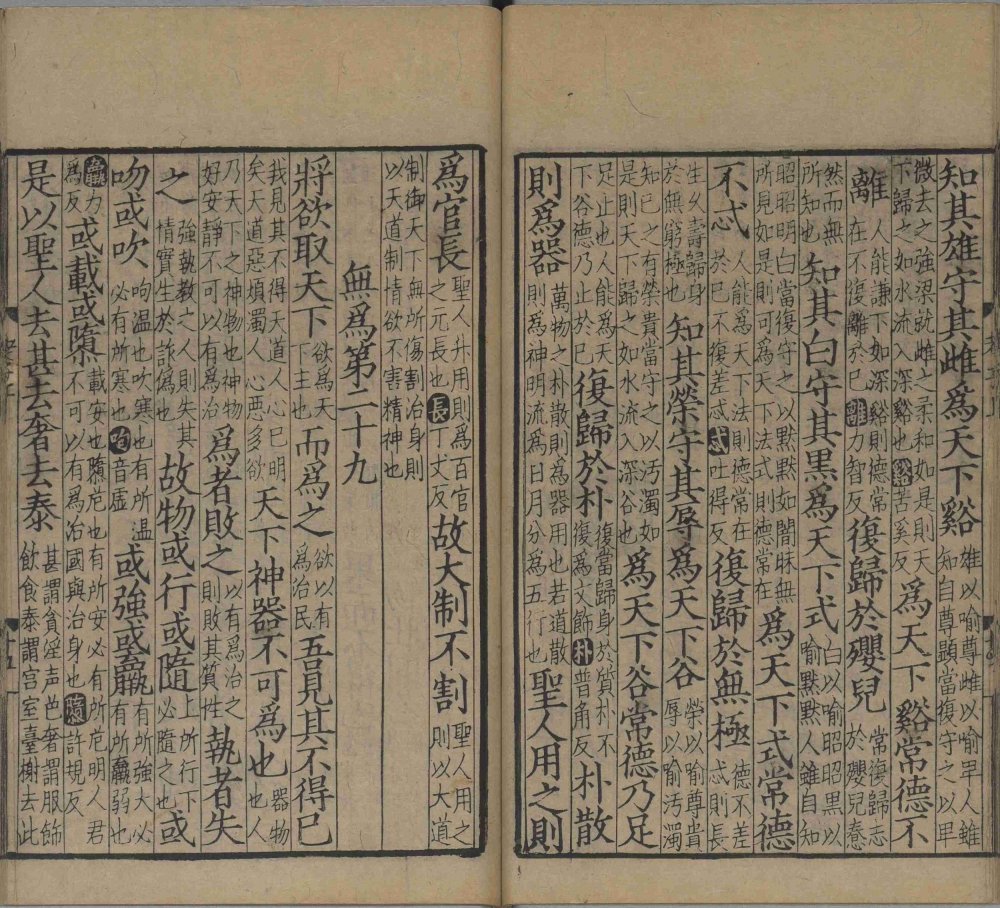 知其雄守其雌爲天下谿雄以喻尊雌以喻卑人雖知自尊顯當復守之以卑
微去之強梁就雌之柔和如是則天下歸之如水流入深谿也谿苦奚反爲天下谿常德不
離人能謙下如深谿則德常在不復離於已離力智反復歸於孾兒常復歸志於孾兒惷
然而無所知也知其白守其黑爲天下式白以喻昭昭黑以喻默默人雖自知
昭昭明白當復守之以默默如闇昧無所見如是則可爲天下法式則德常在爲天下式常德
不忒人能爲天下法則德常在於已不復差忒忒吐得反復歸於無極德不差忒則長
生乆壽歸身於無窮極也知其榮守其辱爲天下谷榮以喻尊貴辱以喻汚濁
知已之有榮貴當守之以汚濁如是則天下歸之如水流入深谷也爲天下谷常德乃足
足止也人能爲天下谷德乃止於已復歸於朴復當歸身於質朴不復爲文飾朴普角反朴散
則爲器萬物之朴散則爲器用也若道散則爲神明流爲日月分爲五行也聖人用之則
爲官長聖人升用則爲百官之元長也長丁丈反故大制不割聖人用之則以大道
制御天下無所傷割治身則以天道制情欲不害精神也
無爲第二十九
將欲取天下欲爲天下主也而爲之欲以有爲治民吾見其不得已
我見其不得天道人心已明矣天道惡煩濁人心惡多欲天下神器不可爲也器物也人
乃天下之神物也神物好安靜不可以有爲治爲者敗之以有爲治之則敗其質性執者失
之強執教之人則失其情實生於詐偽也故物或行或隨上所行下必隨之也或
呴或吹呴温也吹寒也有所温必有所寒也呴音虛或強或羸有所強大必有所羸弱也
羸力爲反或載或隳載安也隳危也有所安必有所危明人君不可以有爲治國與治身也隳許規反
是以聖人去甚去奢去泰甚謂貪淫声色奢謂服飾飲食泰謂宮室臺榭去此